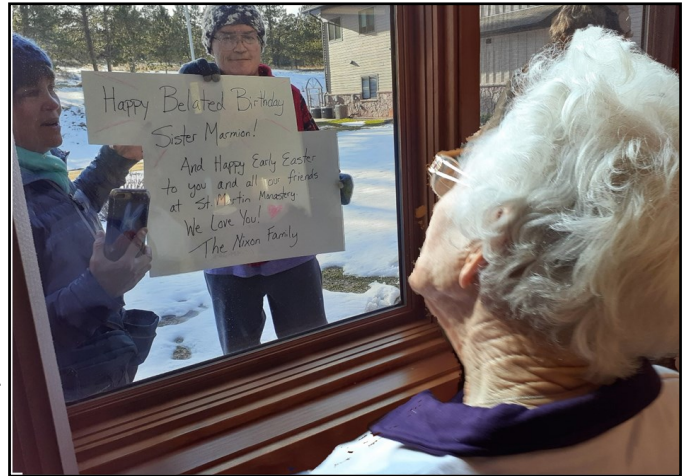 Happy Belated Birthday
Sister Marmion!
And Happy Early Easter
to you and all your friends
at St. Martin Monastery
We Love You!
The Nixon Family